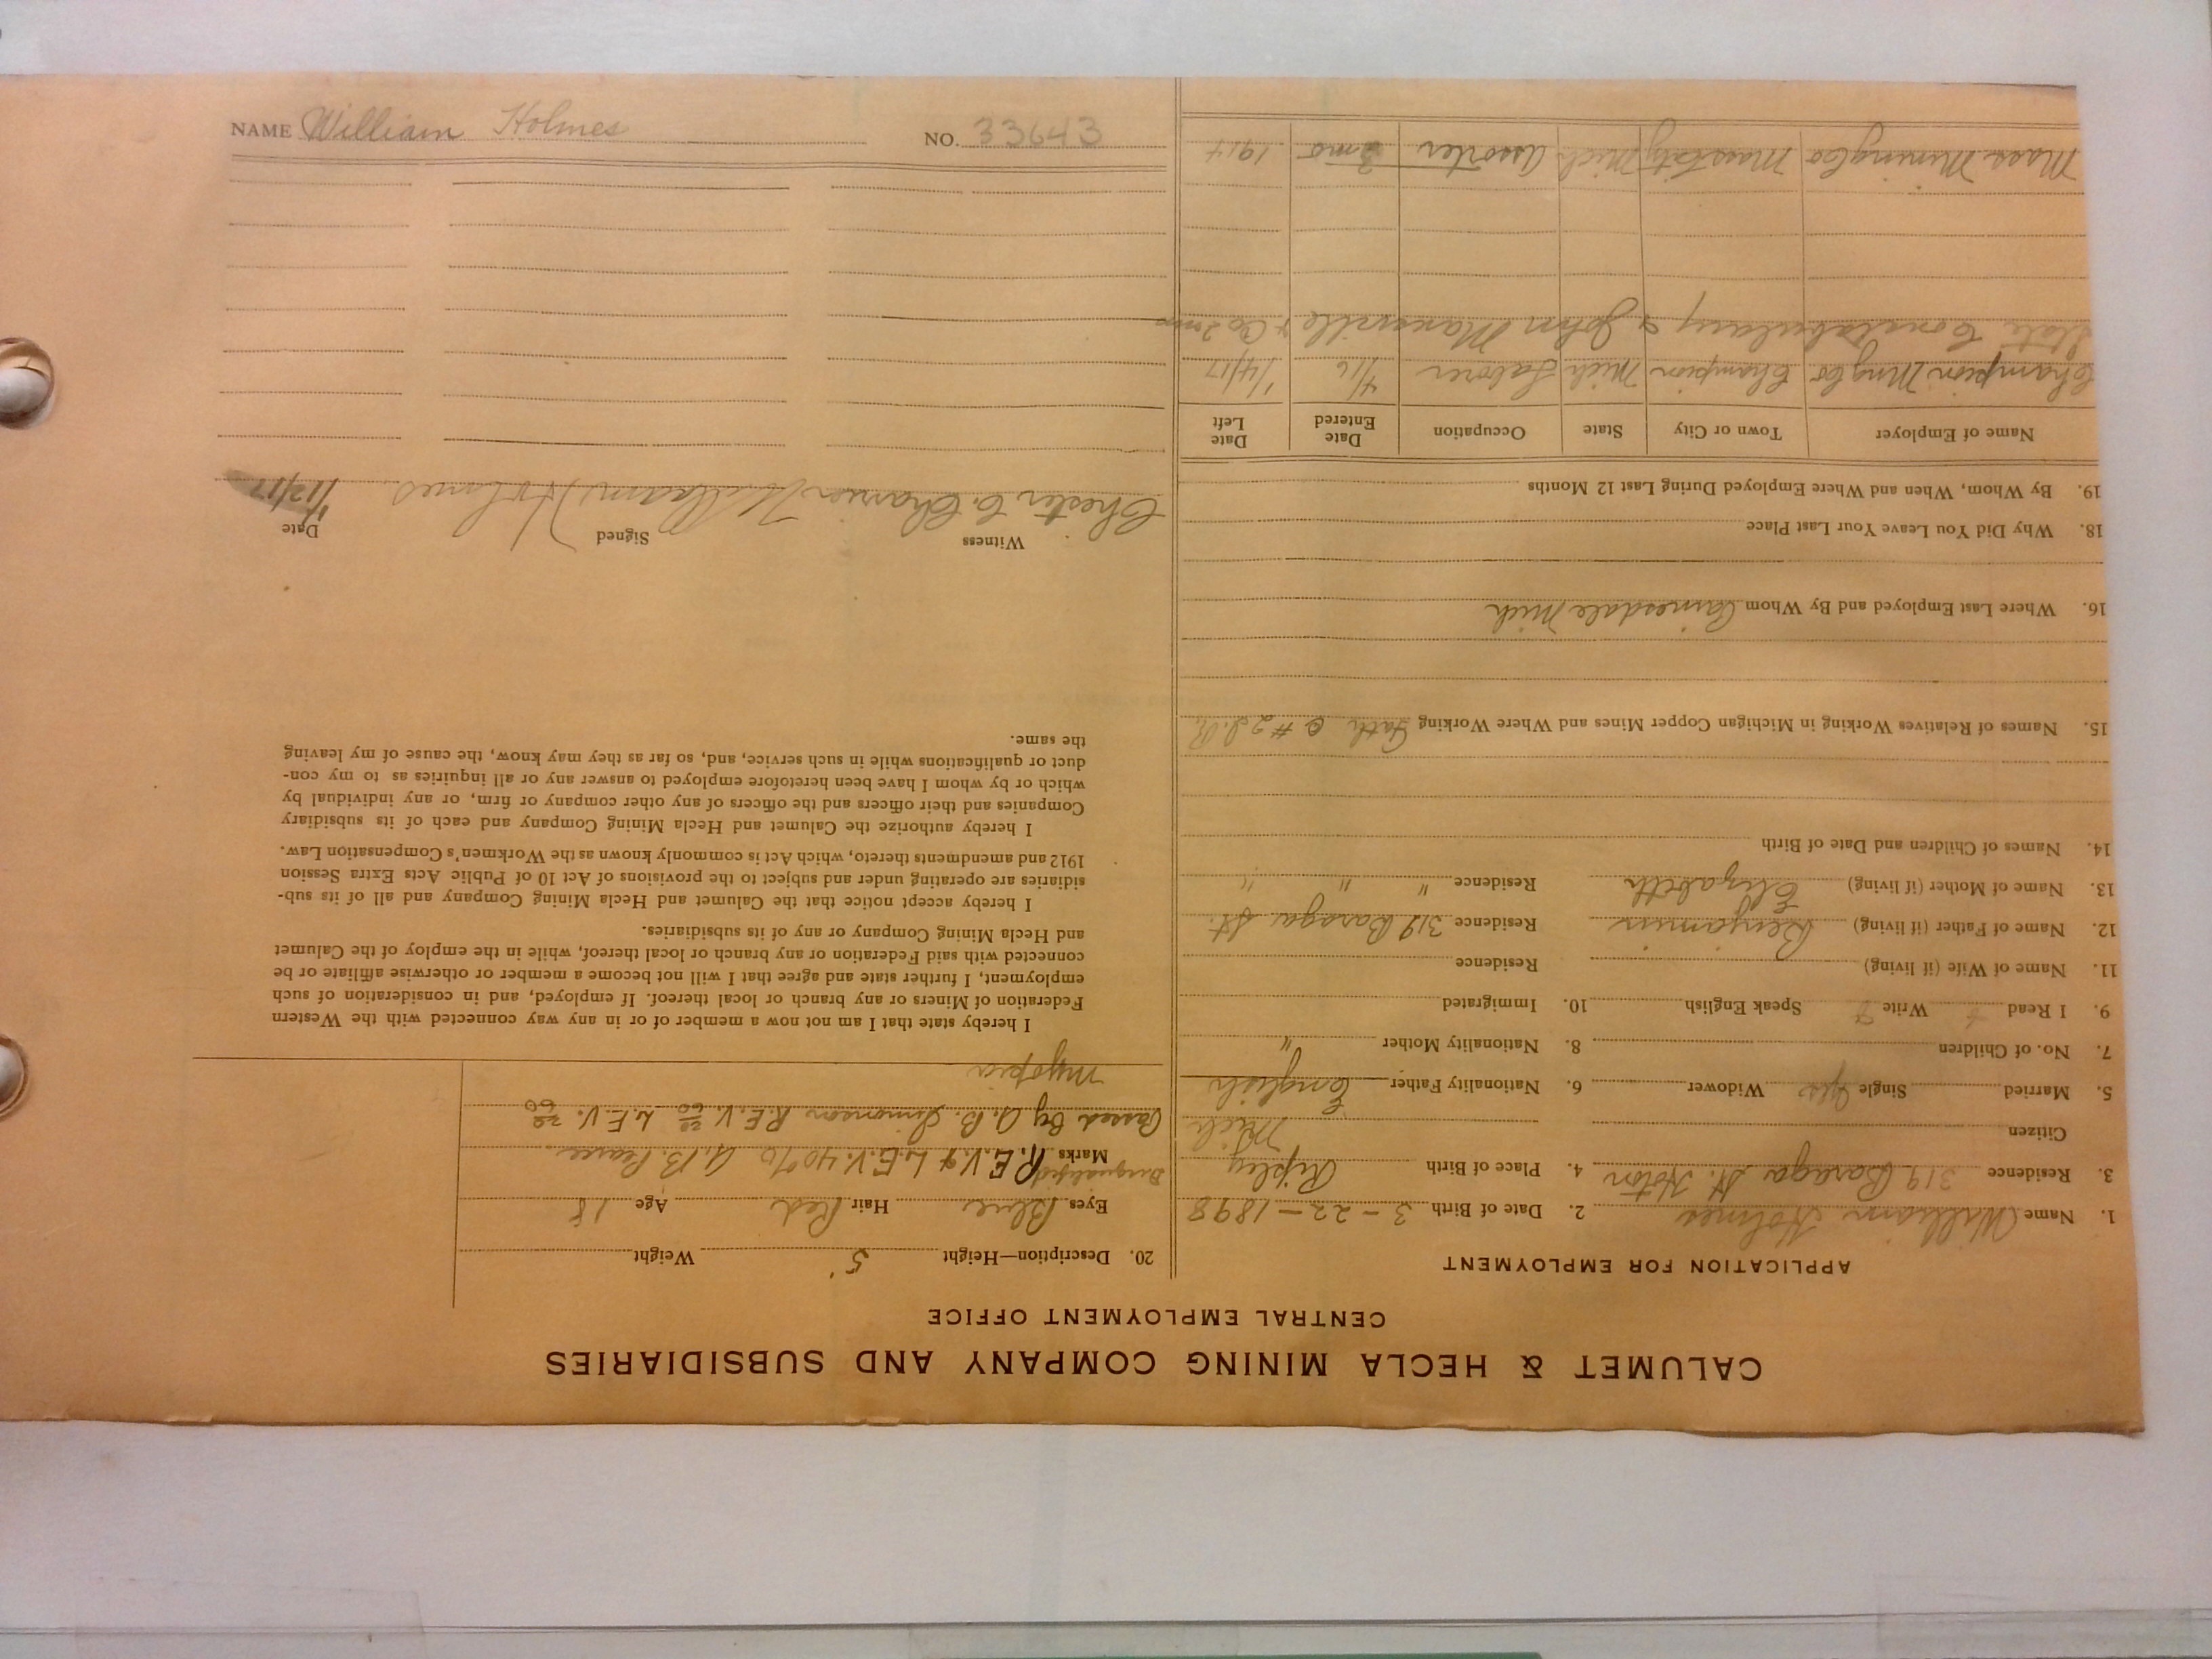 NAME William Holmes NO. 33643
CALUMET & HECLA MINING COMPANY AND SUBSIDIARIES
CENTRAL EMPLOYMENT OFFICE
APPLICATION FOR EMPLOYMENT
1. Name William Holmes 2. Date of Birth 3-22-1898
3. Residence 319 Baraga St. Hoton 4. Place of Birth Ripley
Citizen Mich
5. Married Single yes Widower 6. Nationality Father English
7. No. of Children 8. Nationality Mother "
9. I Read Write Speak English 10. Immigrated
11. Name of Wife (if living) Residence
12. Name of Father (if living) Benjamin Residence 319 Baraga St.
13. Name of Mother (if living) Elizabeth Residence " " "
14. Names of Children and Date of Birth
15. Names of Relatives Working in Michigan Copper Mines and Where Working Fath # 2
16. Where Last Employed and By Whom Painesdale Mich
18. Why Did You Leave Your Last Place
19. By Whom, When and Where Employed During Last 12 Months
Name of Employer Town or City State Occupation Date Entered Date Left
Champion Mng Co Champion Mich Laborer 4/16 1/4/17
State Constabulary & John Manville & Co 2 mo
Mass Mining Co Mass City Mich Assorter 3 mo 1914
20. Description—Height 5' Weight
Eyes Blue Hair Red Age 18
Disqualified
Marks R.E.V. & L.E.V. 40% A.B. Pearce
Passed By A.B. Simonson R.E.V. 20/60 L.E.V. 20/60
Myopia
I hereby state that I am not now a member of or in any way connected with the Western
Federation of Miners or any branch or local thereof. If employed, and in consideration of such
employment, I further state and agree that I will not become a member or otherwise affiliate or be
connected with said Federation or any branch or local thereof, while in the employ of the Calumet
and Hecla Mining Company or any of its subsidiaries.
I hereby accept notice that the Calumet and Hecla Mining Company and all of its sub-
sidiaries are operating under and subject to the provisions of Act 10 of Public Acts Extra Session
1912 and amendments thereto, which Act is commonly known as the Workmen's Compensation Law.
I hereby authorize the Calumet and Hecla Mining Company and each of its subsidiary
Companies and their officers and the officers of any other company or firm, or any individual by
which or by whom I have been heretofore employed to answer any or all inquiries as to my con-
duct or qualifications while in such service, and, so far as they may know, the cause of my leaving
the same.
Witness Signed Date
Chester C. William Holmes 1/12/17